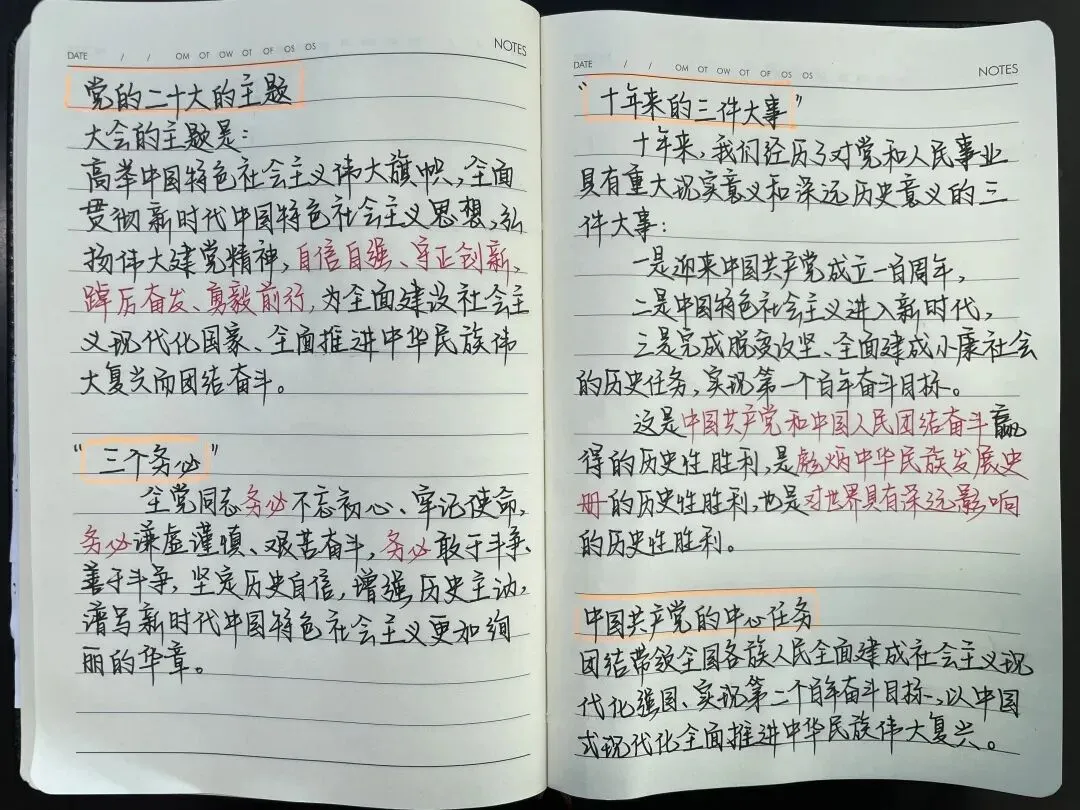 DATE / / OM OT OW OT OF OS OS NOTES
党的二十大的主题
大会的主题是:
高举中国特色社会主义伟大旗帜,全面
贯彻新时代中国特色社会主义思想,弘
扬伟大建党精神,自信自强、守正创新、
踔厉奋发、勇毅前行,为全面建设社会主
义现代化国家、全面推进中华民族伟
大复兴而团结奋斗。
“三个务必”
全党同志务必不忘初心、牢记使命,
务必谦虚谨慎、艰苦奋斗,务必敢于斗争、
善于斗争,坚定历史自信,增强历史主动,
谱写新时代中国特色社会主义更加绚
丽的华章。
DATE / / OM OT OW OT OF OS OS NOTES
“十年来的三件大事”
十年来,我们经历了对党和人民事业
具有重大现实意义和深远历史意义的三
件大事:
一是迎来中国共产党成立一百周年,
二是中国特色社会主义进入新时代,
三是完成脱贫攻坚、全面建成小康社会
的历史任务,实现第一个百年奋斗目标。
这是中国共产党和中国人民团结奋斗赢
得的历史性胜利,是彪炳中华民族发展史
册的历史性胜利,也是对世界具有深远影响
的历史性胜利。
中国共产党的中心任务
团结带领全国各族人民全面建成社会主义现
代化强国、实现第二个百年奋斗目标,以中国
式现代化全面推进中华民族伟大复兴。